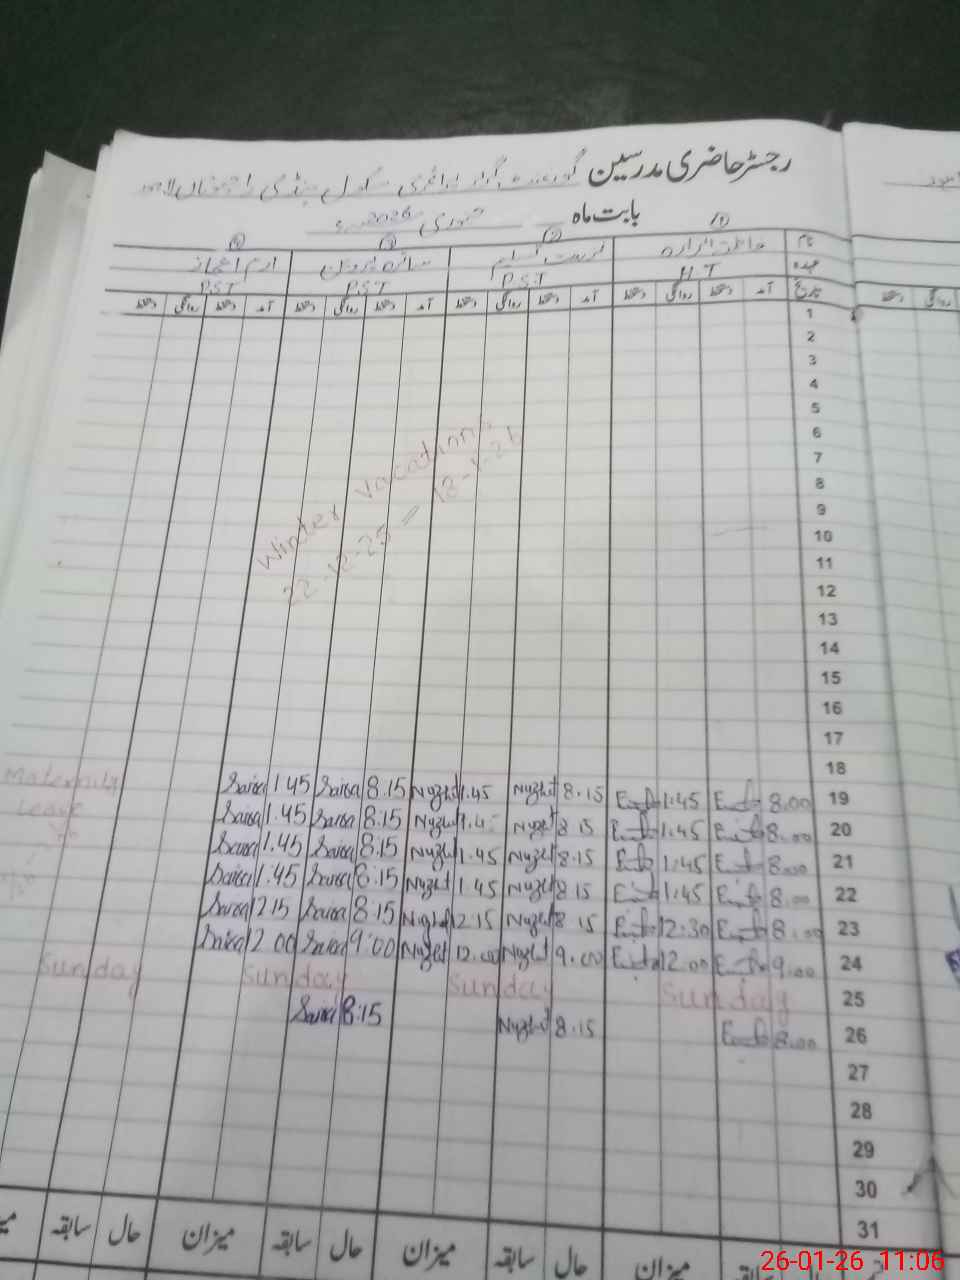 رجسٹر حاضری مدرسین گورنمنٹ گرلز پرائمری سکول
بابت ماہ جنوری 2026ء
نام
عہدہ HT PST PST PST
تاریخ آمد دستخط روانگی دستخط آمد دستخط روانگی دستخط آمد دستخط روانگی دستخط آمد دستخط روانگی دستخط
1
2
3
4
5
6
7
8
9
10
11
12
13
14
15
16
17
18
Winter vacation
22-12-25 = 18-1-26
Maternity
Leave
Saira 1.45 Saira 8.15 Nuzhat 1.45 Nuzhat 8.15 1.45 8.00 19
Saira 1.45 Saira 8.15 Nuzhat 1.45 Nuzhat 8.15 1.45 8.00 20
Saira 1.45 Saira 8.15 Nuzhat 1.45 Nuzhat 8.15 1.45 8.00 21
Saira 1.45 Saira 8.15 Nuzhat 1.45 Nuzhat 8.15 1.45 8.00 22
Saira 12.15 Saira 8.15 Nuzhat 12.15 Nuzhat 8.15 12.30 8.00 23
Saira 12.00 Saira 9:00 Nuzhat 12.00 Nuzhat 9.00 12.00 9.00 24
Sunday Sunday Sunday Sunday 25
Saira 8:15 Nuzhat 8.15 8.00 26
27
28
29
30
31
حال سابقہ میزان حال سابقہ میزان حال سابقہ میزان
26-01-26 11:06